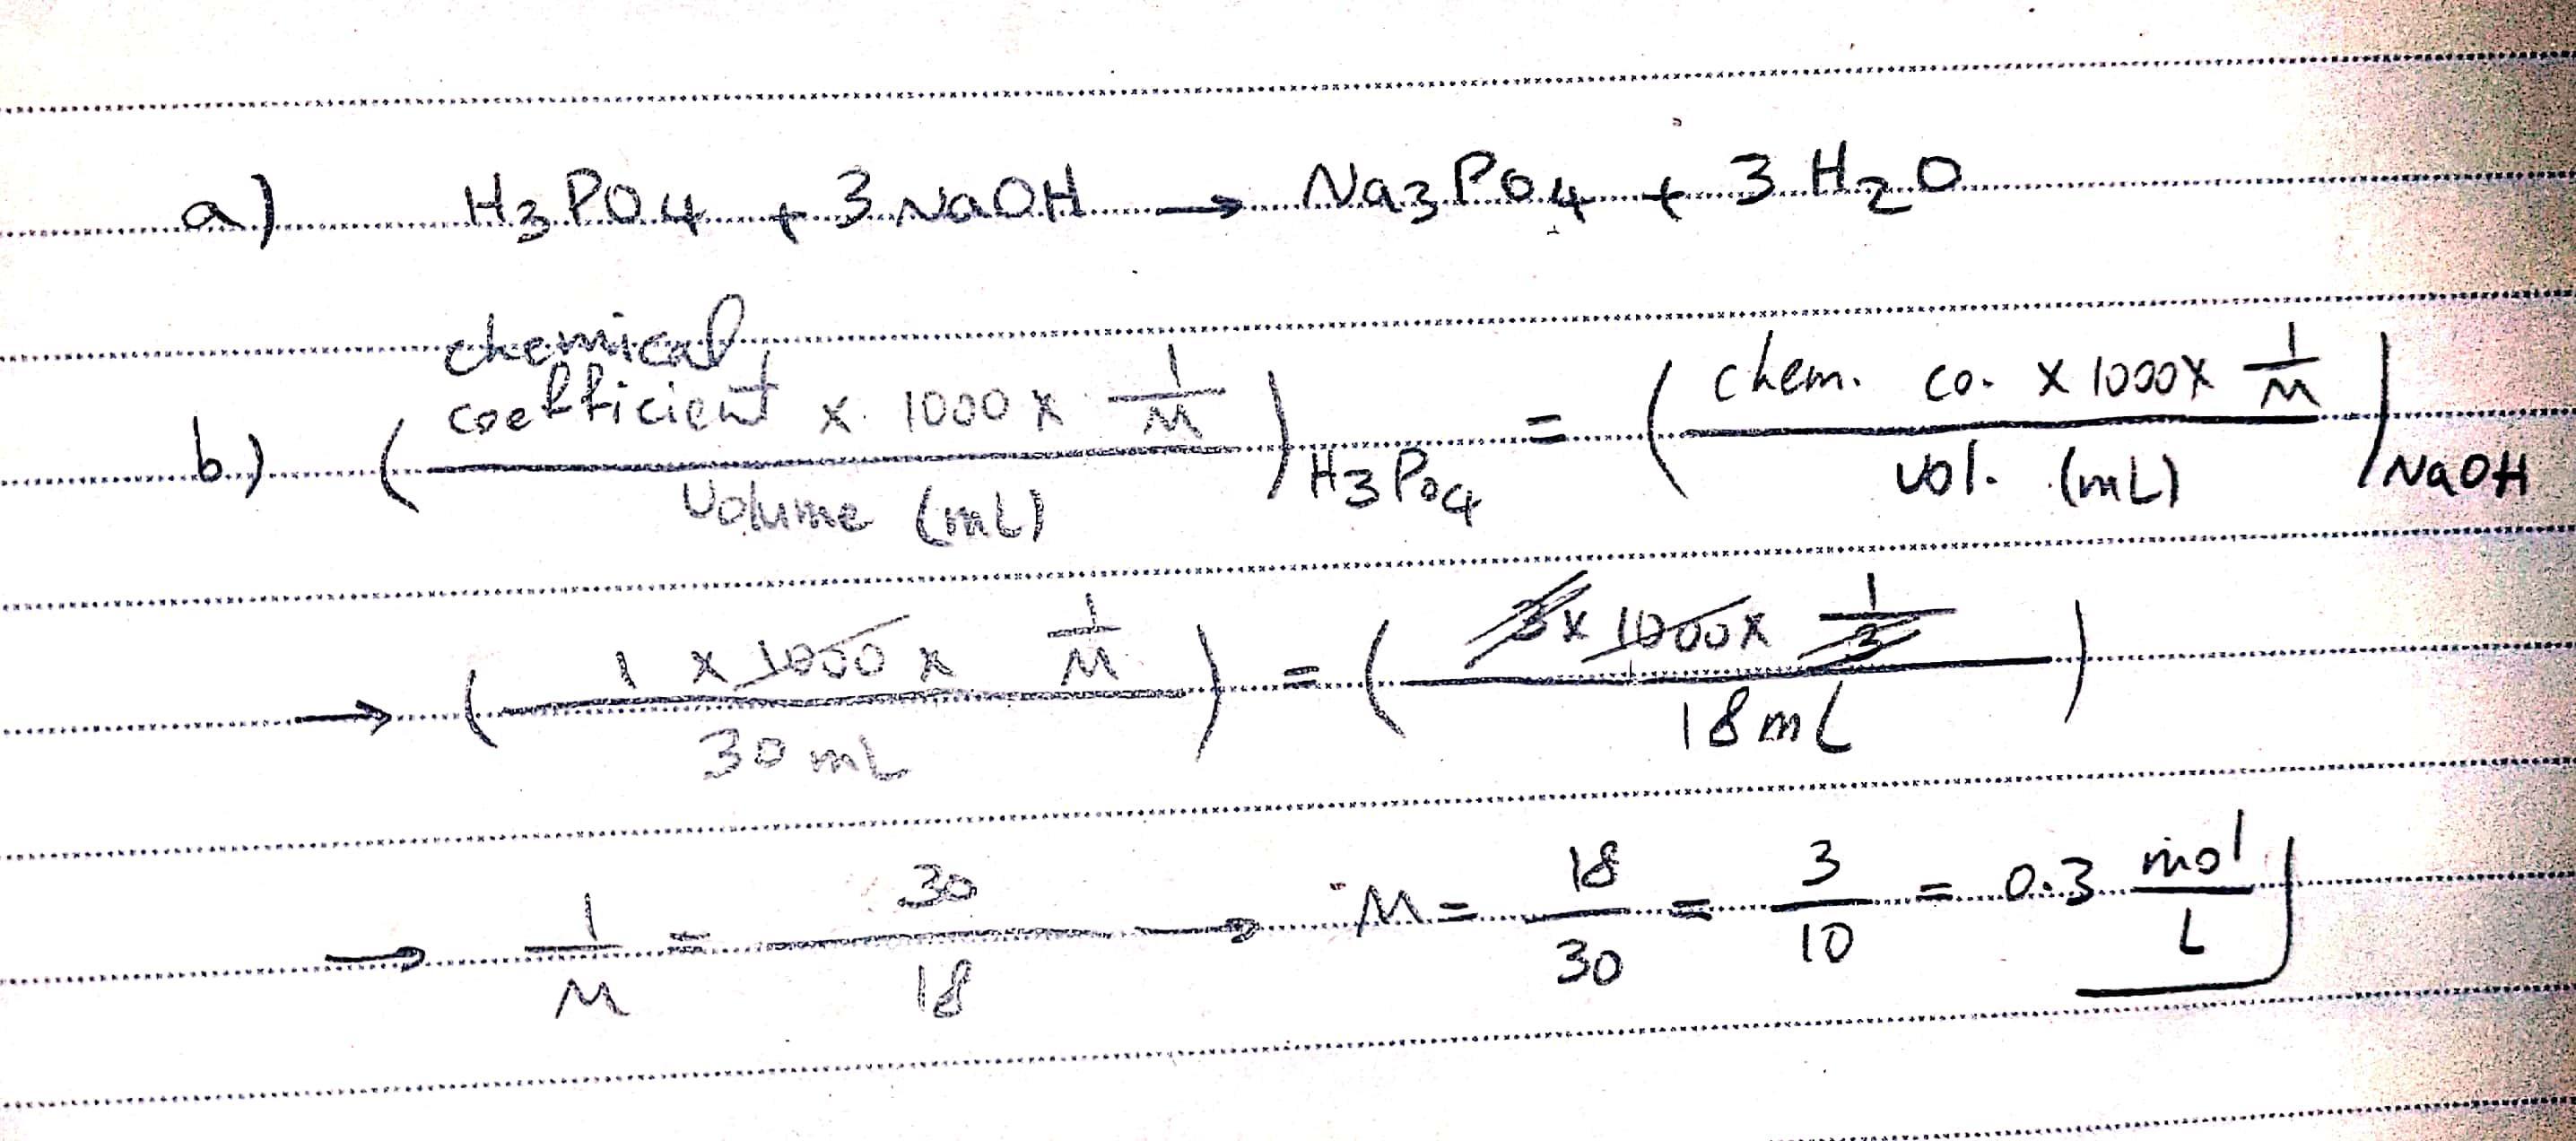 a) H3PO4 + 3 NaOH → Na3PO4 + 3 H2O
b) (chemical coefficient × 1000 × 1/M / Volume (mL)) H3PO4 = (chem. co. × 1000 × 1/M / vol. (mL)) NaOH
→ (1 × 1000 × 1/M / 30 mL) = (3 × 1000 × 1/3 / 18 mL)
→ 1/M = 30/18 → M = 18/30 = 3/10 = 0.3 mol/L